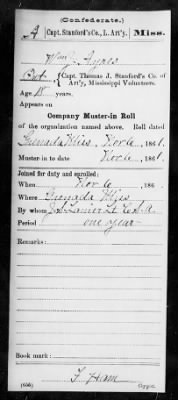 (Confederate.)
A | Capt. Stanford's Co., L. Art'y. | Miss.
Wm J. Ayres
Pvt, Capt. Thomas J. Stanford's Co. of
Art'y, Mississippi Volunteers.
Age 18 years.
Appears on
Company Muster-in Roll
of the organization named above. Roll dated
Grenada Miss, Nov 6, 1861.
Muster-in to date Nov 6, 1861.
Joined for duty and enrolled:
When Nov 6, 186
Where Grenada Miss
By whom Lanier
Period one year
Remarks:
Book mark:
(656) F. Ham
Copyist.